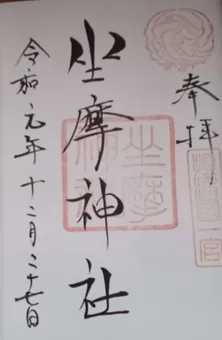 奉拝
坐摩神社
令和元年十二月二十七日
坐摩神社